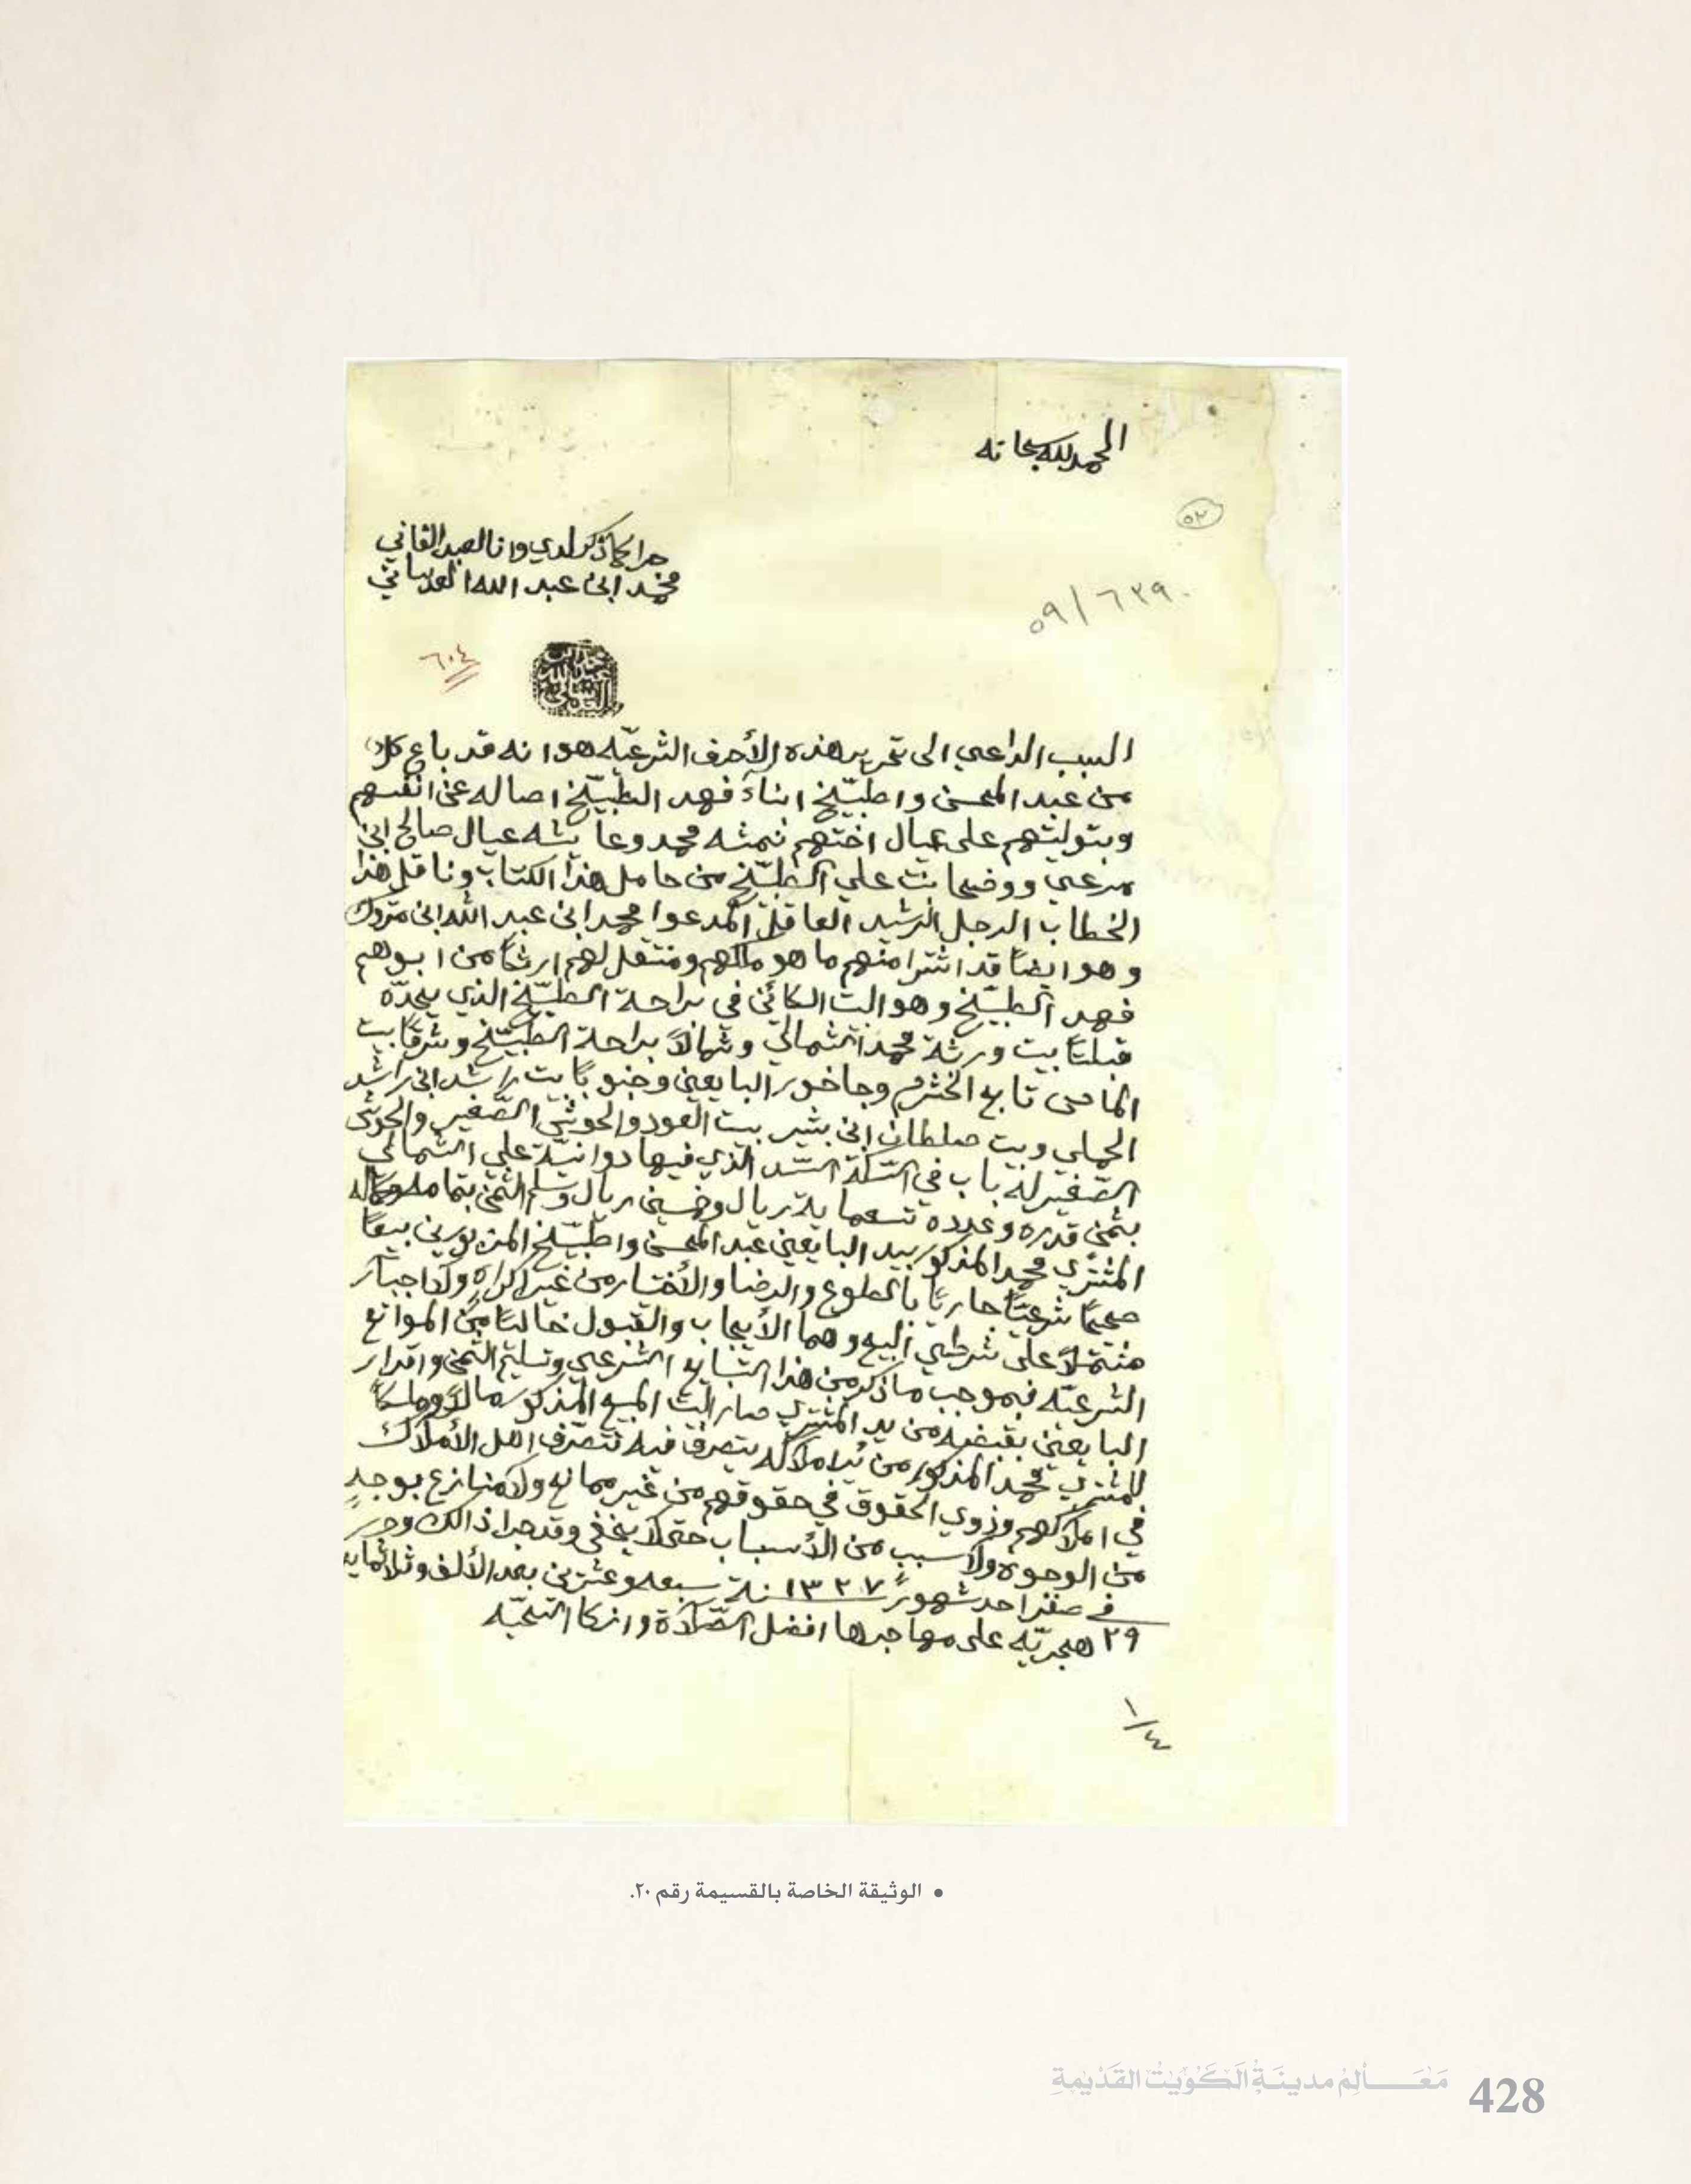 الحمد لله سبحانه
٥٢
٥٩/٦٣٩٠
جرا كما ذكر لدي وانا العبد الفاني
محمد ابن عبد الله العدساني
٦٠٤
السبب الداعي الى تحرير هذه الأحرف الشرعيّه هو انه قد باع كلاً
من عبد المحسن واطبيّخ ابناء فهد الطبيّخ اصاله عن انفسهم
وبتوليتهم على عيال اختهم نمشه محمد وعايشه عيال صالح ابن
مرعي ووضحا بنت علي الطبيّخ من حامل هذا الكتاب وناقل هذا
الخطاب الرجل الرشيد العاقل المدعوا محمد ابن عبد الله ابن متروك
وهو ايضاً قد اشترا منهم ما هو ملكهم ومنتقل لهم ارثاً من ابوهم
فهد الطبيّخ وهو البيت الكائن في براحة الطبيّخ الذي يحدّه
قبلتاً بيت ورثة محمد الشمالي وشمالاً براحة الطبيّخ وشرقاً بيت
الماص تابع الخشرم وجاخور البايعين وجنوباً بيت راشد ابن راشد
الحملي وبيت صلطان ابن بشير بيت العود والحوش الصّغير والحوش
الصّغير له باب في السّكّة السّد الذي فيها دوانيّة علي الشمالي
بثمن قدره وعدده تسعماية ريال وخمسين ريال وتسلم الثمن بتمامه وكماله
المشتري محمد المذكور بيد البايعين عبد المحسن واطبيّخ المزبورين بيعاً
صحيحاً شرعيّاً جارياً بالطوع والرضا والأختيار من غير اكراهٍ ولا اجبار
مشتملاً على شرطي البيع وهما الأيجاب والقبول خالياً من الموانع
الشرعيّه فبموجب ما ذكر من هذا التبايع الشرعي وتسليم الثمن واقرار
البايعين بقبضه من يد المشتري صار البيت المبيع المذكور مالاً وملكاً
للمشتري محمد المذكور من املاكه يتصرف فيه تتصرّف اهل الأملاك
في املاكهم وذوي الحقوق في حقوقهم من غير ممانع ولا منازع بوجهٍ
من الوجوه ولا سبب من الأسباب حتى لا يخفى وقد جرا ذالك وحرر
في صفر احد شهور ١٣٢٧ سنة سبعه وعشرين بعد الألف وثلاثمايه
٢٩ هجريّه على مهاجرها افضل الصّلاة وازكا التحيّه
١/٤
• الوثيقة الخاصة بالقسيمة رقم ٢٠.
مَعَـالِمُ مدينَةِ الكُوَيْتْ القَدْيمةِ 428